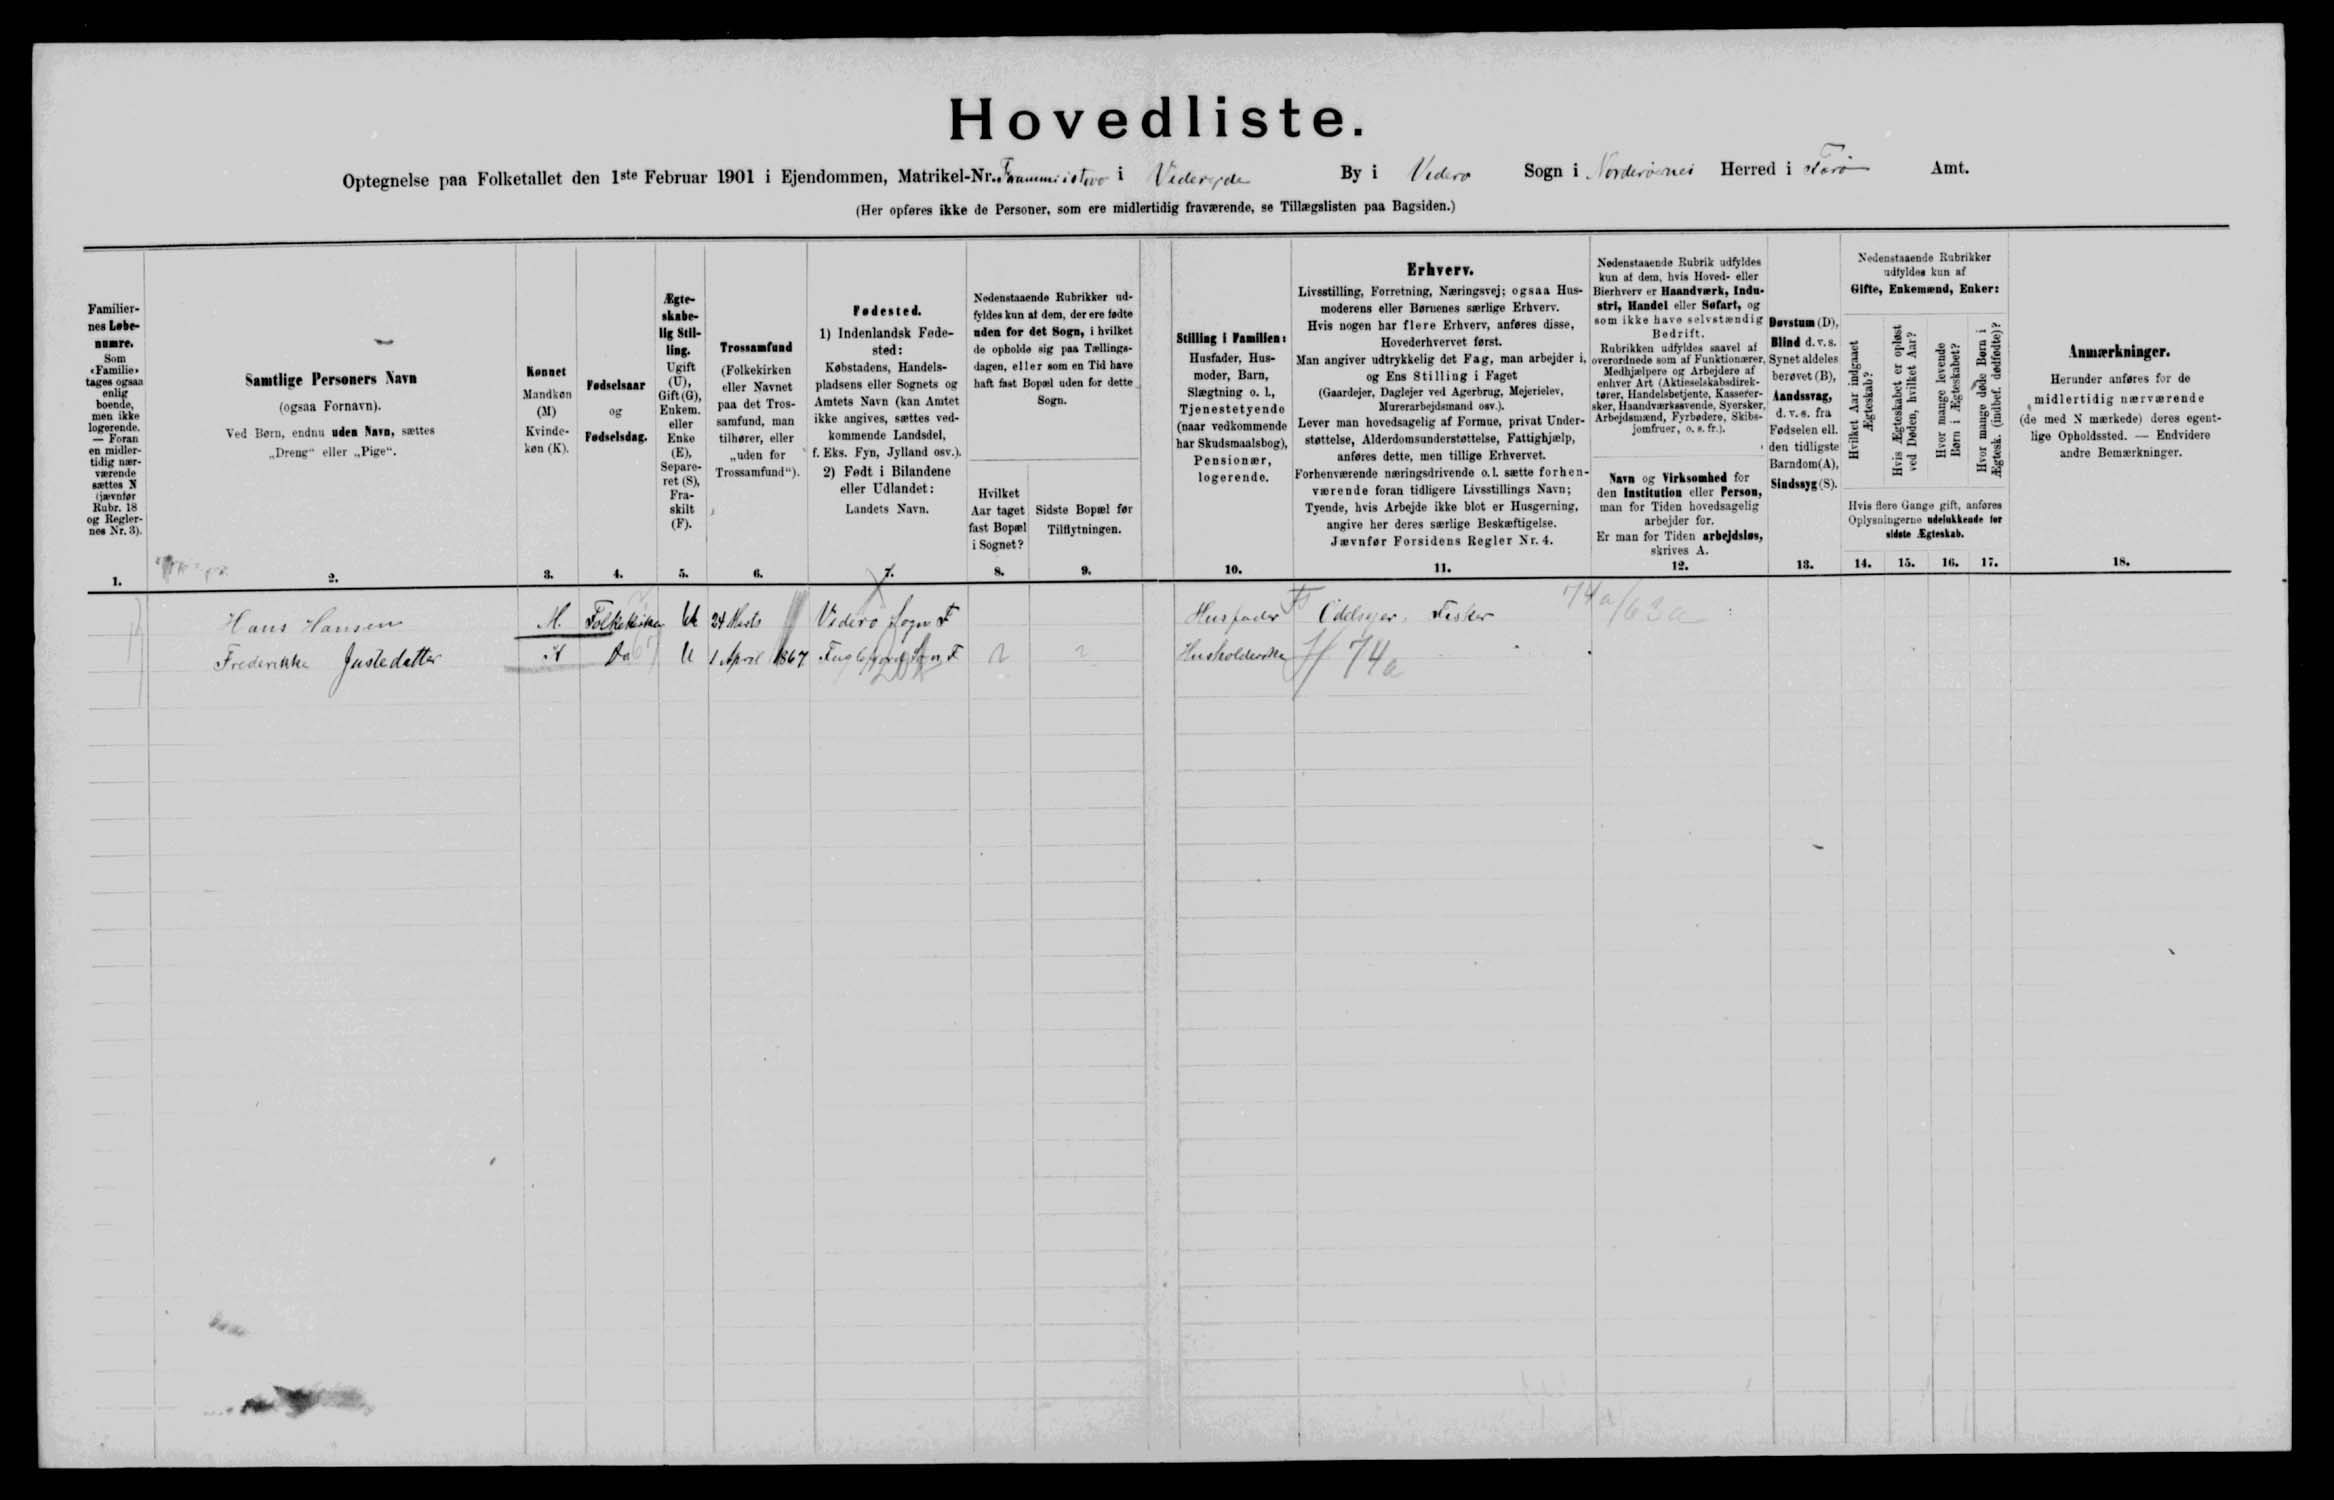 Hovedliste.
Optegnelse paa Folketallet den 1ste Februar 1901 i Ejendommen, Matrikel-Nr. i Videreide By i Viderø Sogn i Norderøernes Herred i Færø Amt.
(Her opføres ikke de Personer, som ere midlertidig fraværende, se Tillægslisten paa Bagsiden.)
Familier-
nes Løbe-
numre.
Som
«Familie»
tages ogsaa
enlig
boende,
men ikke
logerende.
— Foran
en midler-
tidig nær-
værende
sættes N
(jævnfør
Rubr. 18
og Regler-
nes Nr. 3).
1.
Samtlige Personers Navn
(ogsaa Fornavn).
Ved Børn, endnu uden Navn, sættes
„Dreng“ eller „Pige“.
2.
Kønnet
Mandkøn
(M)
eller
Kvinde-
køn (K).
3.
Fødselsaar
og
Fødselsdag.
4.
Ægte-
skabe-
lig Stil-
ling.
Ugift
(U),
Gift (G),
Enkem.
eller
Enke
(E),
Separe-
ret (S),
Fra-
skilt
(F).
5.
Trossamfund
(Folkekirken
eller Navnet
paa det Tros-
samfund, man
tilhører, eller
„uden for
Trossamfund“).
6.
Fødested.
1) Indenlandsk Føde-
sted:
Købstadens, Handels-
pladsens eller Sognets og
Amtets Navn (kan Amtet
ikke angives, sættes ved-
kommende Landsdel,
f. Eks. Fyn, Jylland osv.).
2) Født i Bilandene
eller Udlandet:
Landets Navn.
7.
Nedenstaaende Rubrikker ud-
fyldes kun af dem, der ere fødte
uden for det Sogn, i hvilket
de opholde sig paa Tællings-
dagen, eller som en Tid have
haft fast Bopæl uden for dette
Sogn.
Hvilket
Aar taget
fast Bopæl
i Sognet?
8.
Sidste Bopæl før
Tilflytningen.
9.
Stilling i Familien:
Husfader, Hus-
moder, Barn,
Slægtning o. l.,
Tjenestetyende
(naar vedkommende
har Skudsmaalsbog),
Pensionær,
logerende.
10.
Erhverv.
Livsstilling, Forretning, Næringsvej; ogsaa Hus-
moderens eller Børnenes særlige Erhverv.
Hvis nogen har flere Erhverv, anføres disse,
Hovederhvervet først.
Man angiver udtrykkelig det Fag, man arbejder i,
og Ens Stilling i Faget
(Gaardejer, Daglejer ved Agerbrug, Mejerielev,
Murerarbejdsmand osv.).
Lever man hovedsagelig af Formue, privat Under-
støttelse, Alderdomsunderstøttelse, Fattighjælp,
anføres dette, men tillige Erhvervet.
Forhenværende næringsdrivende o. l. sætte forhen-
værende foran tidligere Livsstillings Navn;
Tyende, hvis Arbejde ikke blot er Husgerning,
angive her deres særlige Beskæftigelse.
Jævnfør Forsidens Regler Nr. 4.
11.
Nedenstaaende Rubrik udfyldes
kun af dem, hvis Hoved- eller
Bierhverv er Haandværk, Indu-
stri, Handel eller Søfart, og
som ikke have selvstændig
Bedrift.
Rubrikken udfyldes saavel af
overordnede som af Funktionærer,
Medhjælpere og Arbejdere af
enhver Art (Aktieselskabsdirek-
tører, Handelsbetjente, Kasserer-
sker, Haandværkssvende, Syersker,
Arbejdsmænd, Fyrbødere, Skibs-
jomfruer, o. s. fr.).
Navn og Virksomhed for
den Institution eller Person,
man for Tiden hovedsagelig
arbejder for.
Er man for Tiden arbejdsløs,
skrives A.
12.
Døvstum (D),
Blind d. v. s.
Synet aldeles
berøvet (B),
Aandssvag,
d. v. s. fra
Fødselen ell.
den tidligste
Barndom (A),
Sindssyg (S).
13.
Nedenstaaende Rubrikker
udfyldes kun af
Gifte, Enkemænd, Enker:
Hvilket Aar indgaaet
Ægteskab?
Hvis Ægteskabet er opløst
ved Døden, hvilket Aar?
Hvor mange levende
Børn i Ægteskabet?
Hvor mange døde Børn i
Ægtesk. (indbef. dødfødte)?
Hvis flere Gange gift, anføres
Oplysningerne udelukkende for
sidste Ægteskab.
14. 15. 16. 17.
Anmærkninger.
Herunder anføres for de
midlertidig nærværende
(de med N mærkede) deres egent-
lige Opholdssted. — Endvidere
andre Bemærkninger.
18.
Hans Hansen M. Folkekirken U 24 Marts Viderø Sogn F Husfader Odelsejer. Fisker 74a/63a
Frederikke Justedatter K Do U 1 April 1867 Fuglefjord Sogn F Husholderske H 74a